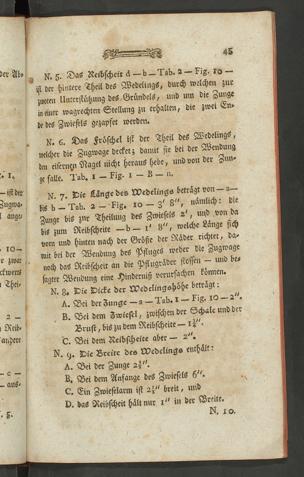 45
N. 5. Das Reibscheit d — b — Tab. 2 — Fig. 10 —
ist der hintere Theil des Wedelings, durch welchen zur
zweiten Unterstützung des Gründels, und um die Zunge
in einer wagrechten Stellung zu erhalten, die zwei En-
de des Zwiesels gezapfet werden.
N. 6. Das Fröschel ist der Theil des Wedelings,
welcher die Zugwage decket; damit sie bei der Wendung
den eisernen Nagel nicht heraus hebe, und von der Zun-
ge falle. Tab. 1 — Fig. 1 — B — n.
N. 7. Die Länge des Wedelings beträgt von — a —
bis b — Tab. 2 — Fig. 10 — 3' 8", nämlich: die
Zunge bis zur Theilung des Zwiesels 2', und von da
bis zum Reibscheite — b — 1' 8", welche Länge sich
vorn und hinten nach der Größe der Räder richtet, da-
mit bei der Wendung des Pfluges weder die Zugwage
noch das Reibscheit an die Pflugräder stossen — und be-
sagter Wendung eine Hinderniß verursachen können.
N. 8. Die Dicke der Wedelingshöhe beträgt:
A. Bei der Zunge — a — Tab. 1 — Fig. 10 — 2".
B. Bei dem Zwiesel, zwischen der Schale und der
Brust, bis zu dem Reibscheite — 1½".
C. Bei dem Reibscheite aber — 2".
N. 9. Die Breite des Wedelings enthält:
A. Bei der Zunge 2½".
B. Bei dem Anfange des Zwiesels 6".
C. Ein Zwieselarm ist 2½" breit, und
D. das Reibscheit hält nur 1" in der Breite.
N. 10.